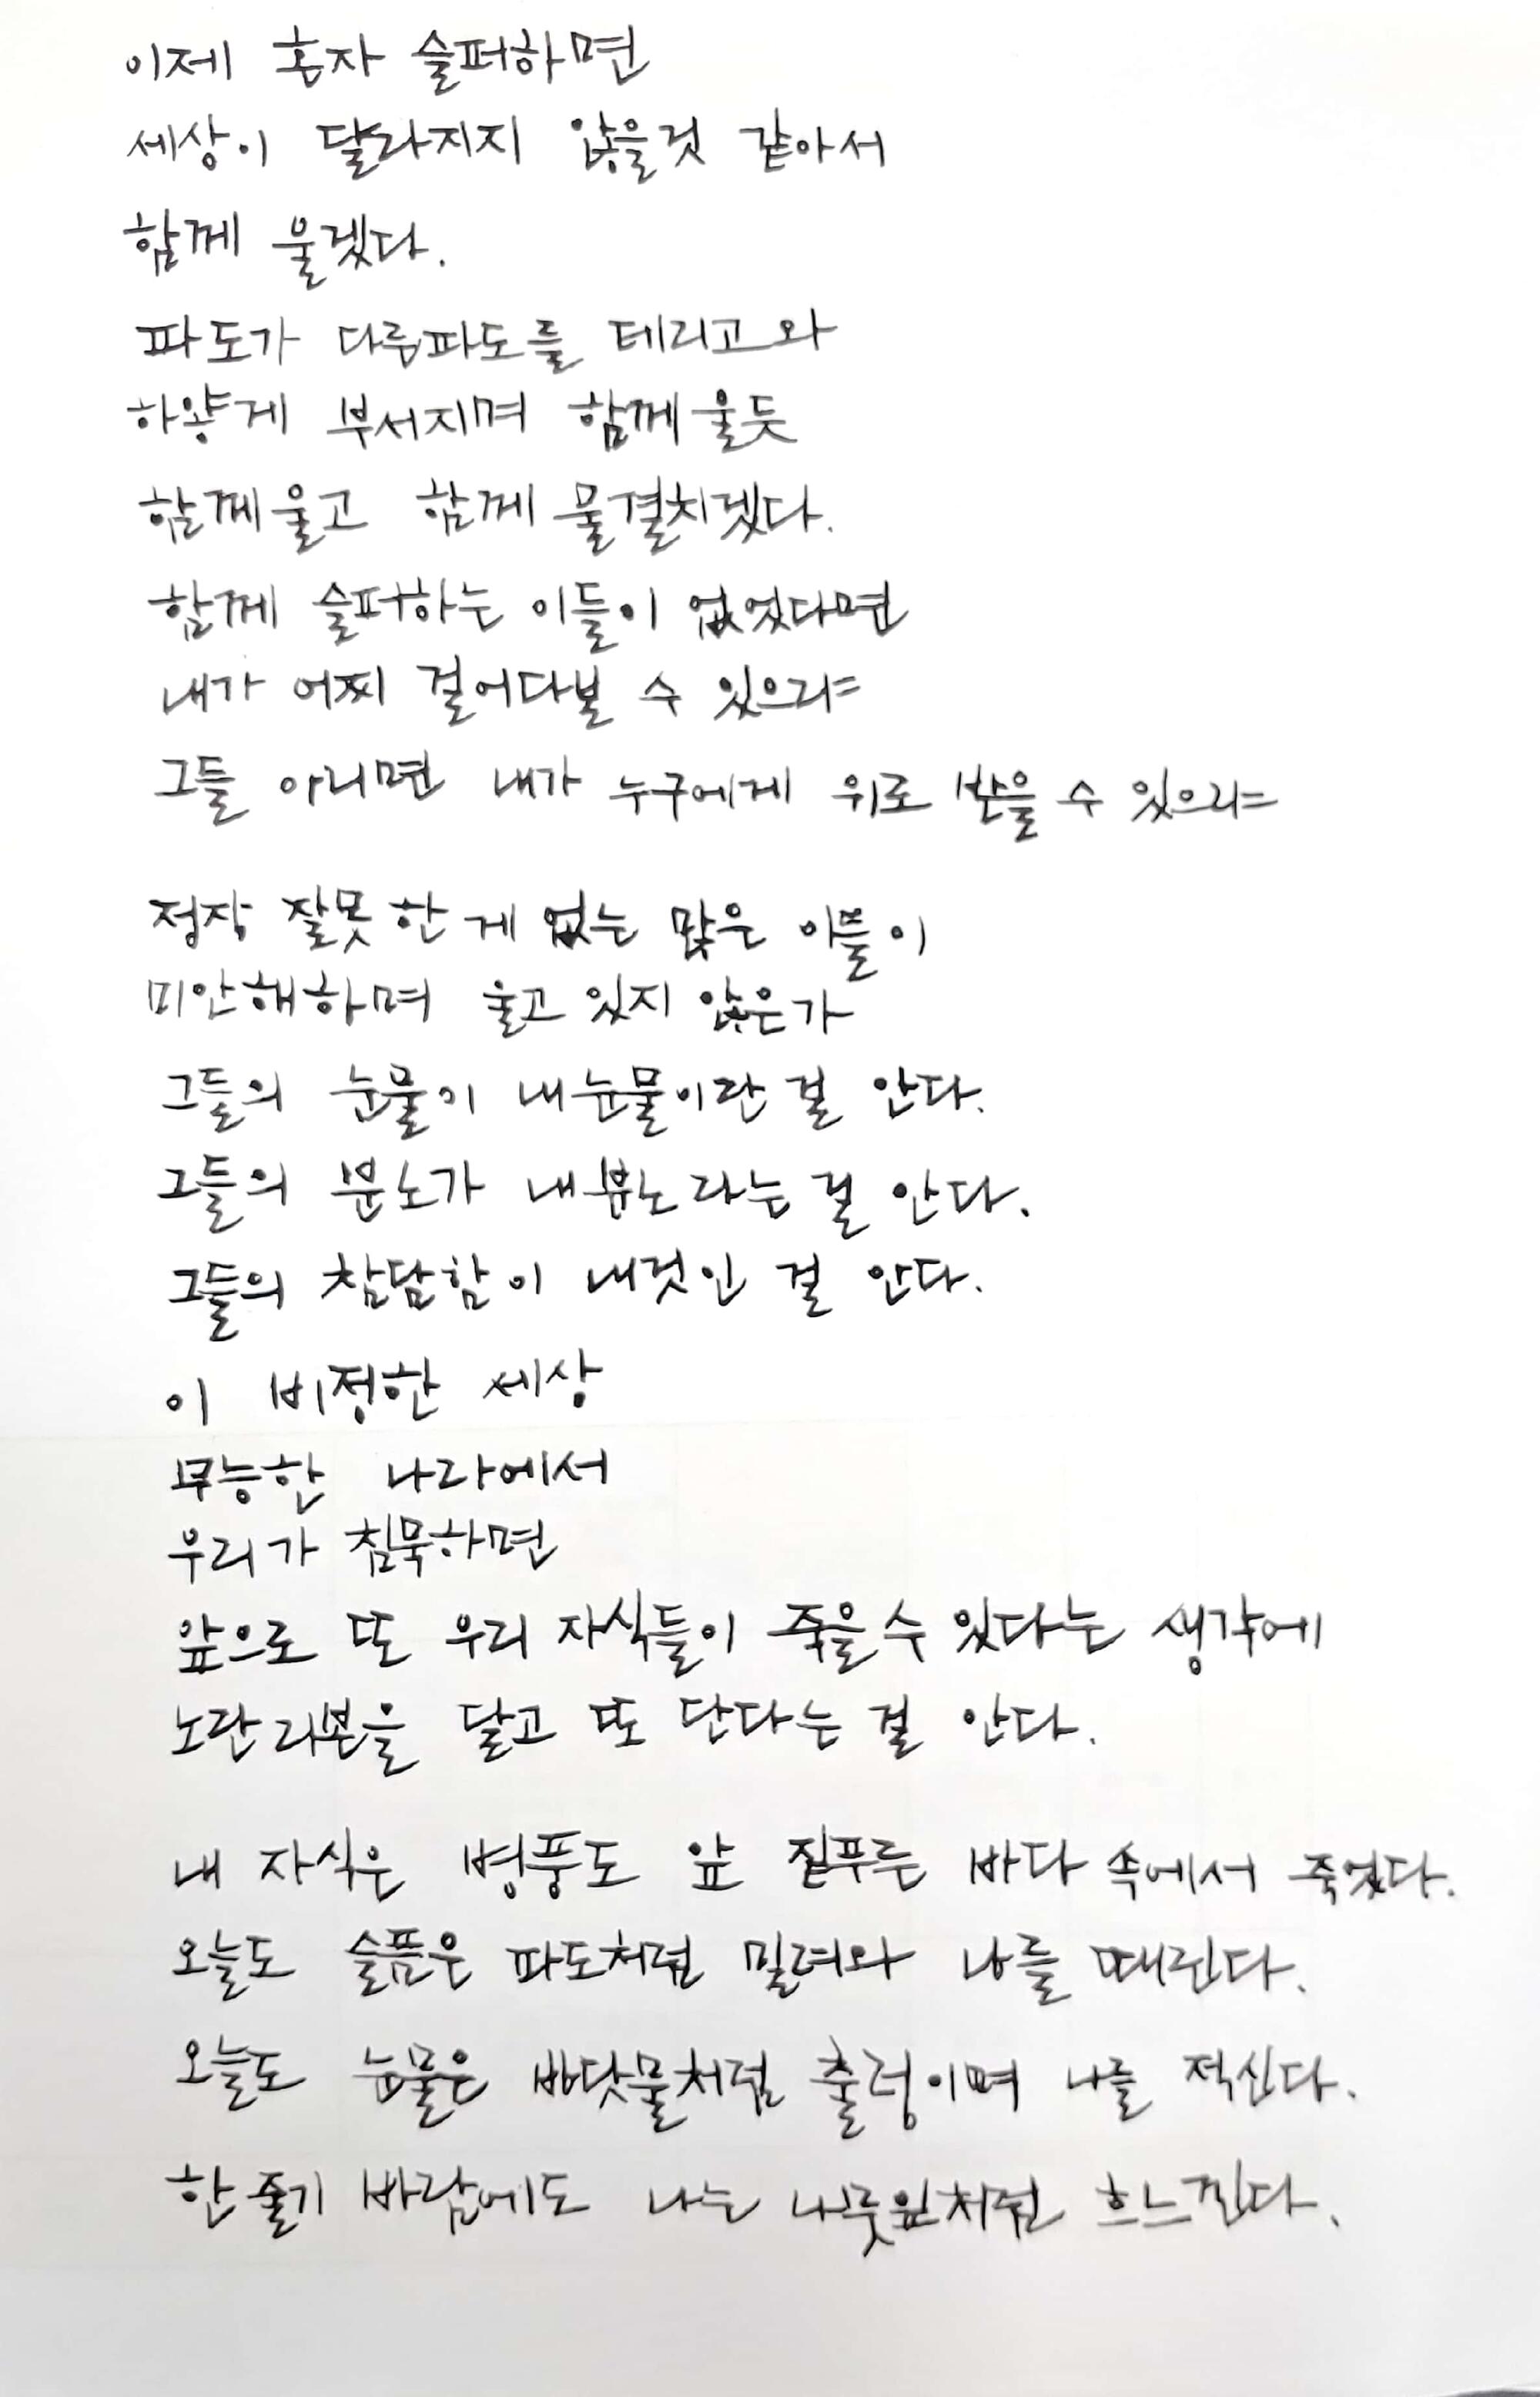 이제 혼자 슬퍼하면
세상이 달라지지 않을것 같아서
함께 울겠다.
파도가 다른파도를 데리고 와
하얗게 부서지며 함께울듯
함께울고 함께 물결치겠다.
함께 슬퍼하는 이들이 없었다면
내가 어찌 걸어다닐 수 있으랴
그들 아니면 내가 누구에게 위로 받을 수 있으랴
정작 잘못한 게 없는 많은 이들이
미안해하며 울고 있지 않은가
그들의 눈물이 내눈물이란 걸 안다.
그들의 분노가 내분노라는 걸 안다.
그들의 참담함이 내것인 걸 안다.
이 비정한 세상
무능한 나라에서
우리가 침묵하면
앞으로 또 우리 자식들이 죽을수 있다는 생각에
노란리본을 달고 또 단다는 걸 안다.
내 자식은 병풍도 앞 짙푸른 바다 속에서 죽었다.
오늘도 슬픔은 파도처럼 밀려와 나를 때린다.
오늘도 눈물은 바닷물처럼 출렁이며 나를 적신다.
한줄기 바람에도 나는 나뭇잎처럼 흐느낀다.